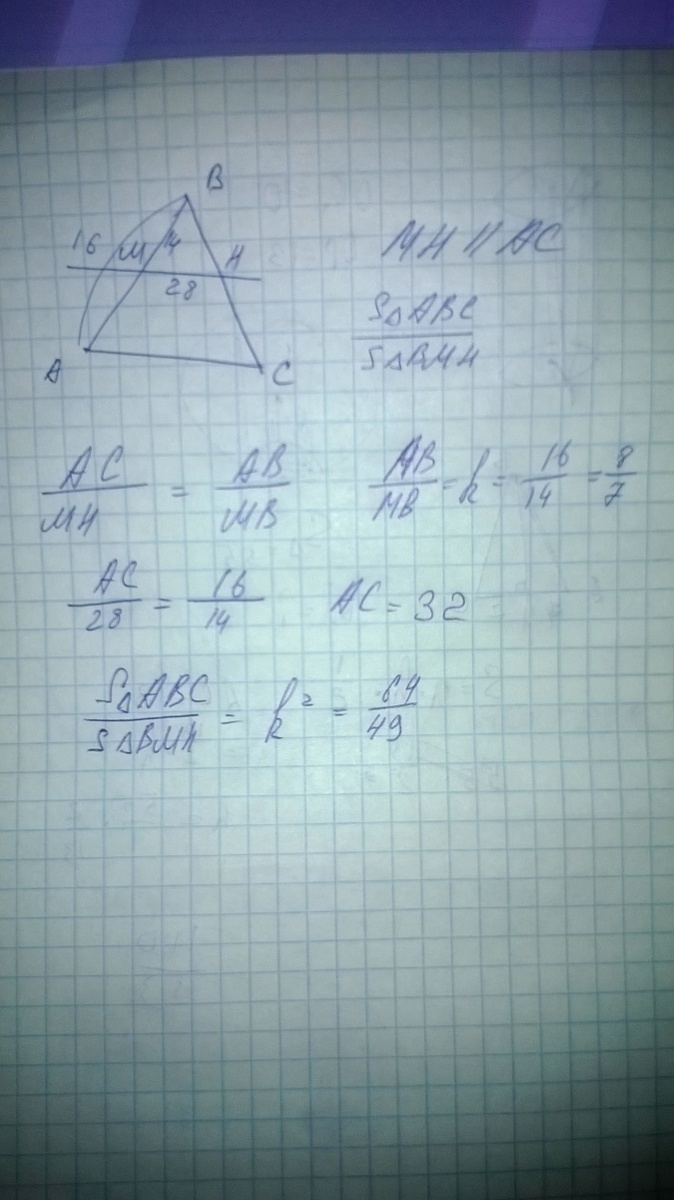 B
16 M 14 H
28
A C
MH || AC
S△ABC / S△BMH
AC / MH = AB / MB AB / MB = k = 16 / 14 = 8 / 7
AC / 28 = 16 / 14 AC = 32
S△ABC / S△BMH = k² = 64 / 49